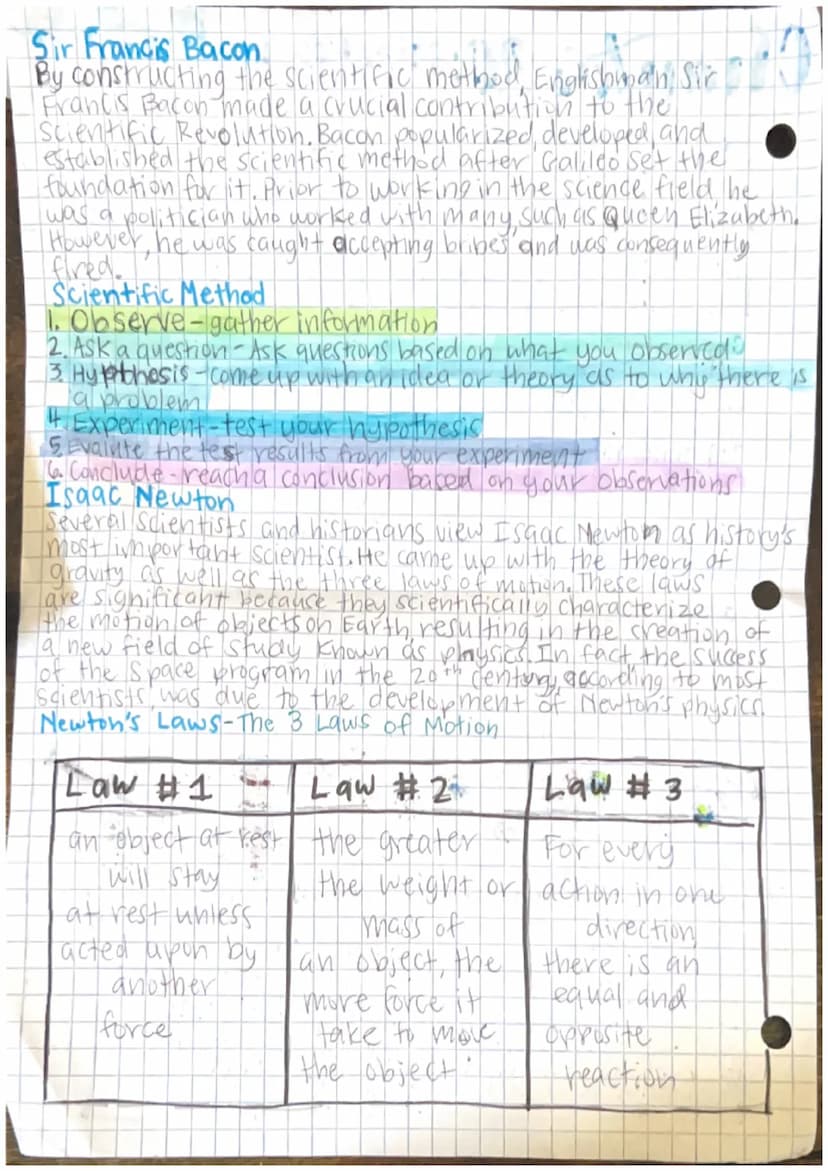 Sir Francis Bacon
By constructing the scientific method, Englishman Sir
Francis Bacon made a crucial contribution to the
Scientific Revolution. Bacon popularized, developed, and
established the scientific method after Galileo set the
foundation for it. Prior to working in the science field, he
was a politician who worked with many, such as Queen Elizabeth.
However, he was caught accepting bribes and was consequently
fired.
Scientific Method
1. Observe - gather information
2. Ask a question - Ask questions based on what you observed
3. Hypthosis - come up with an idea or theory as to why there is
a problem
4. Experiment - test your hypothesis
5. Evalute the test results from your experiment
6. Conclude - reach a conclusion based on your observations
Isaac Newton
Several scientists and historians view Isaac Newton as history's
most important scientist. He came up with the theory of
gravity as well as the three laws of motion. These laws
are significant because they scientifically characterize
the motion of objects on Earth, resulting in the creation of
a new field of study known as physics. In fact the success
of the space program in the 20th century, according to most
scientists, was due to the development of Newton's physics.
Newton's Laws - The 3 Laws of Motion
Law #1
an object at rest
will stay
at rest unless
acted upon by
another
force
Law #2
the greater
the weight or
mass of
an object, the
more force it
take to move
the object.
Law #3
For every
action in one
direction
there is an
equal and
opposite
reaction